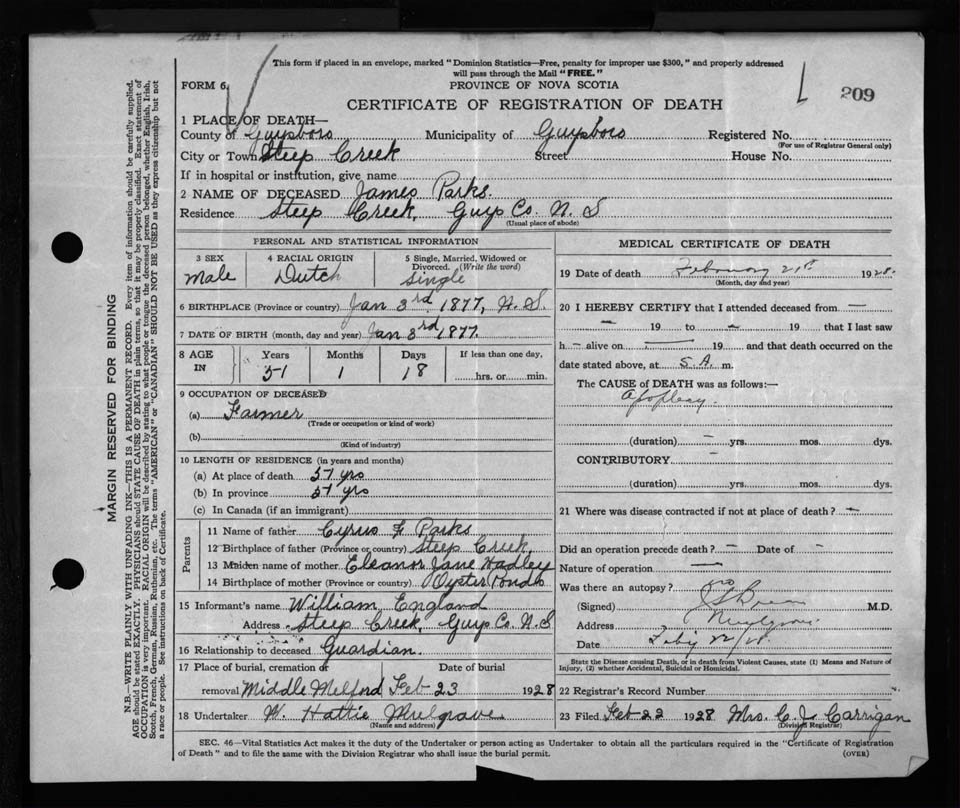 This form if placed in an envelope, marked "Dominion Statistics—Free, penalty for improper use $300," and properly addressed
will pass through the Mail "FREE."
FORM 6.
PROVINCE OF NOVA SCOTIA
209
CERTIFICATE OF REGISTRATION OF DEATH
1 PLACE OF DEATH—
County of Guysboro Municipality of Guysboro Registered No.
(For use of Registrar General only)
City or Town Steep Creek Street House No.
If in hospital or institution, give name
2 NAME OF DECEASED James Parks.
Residence Steep Creek, Guys Co. N. S
(Usual place of abode)
PERSONAL AND STATISTICAL INFORMATION
3 SEX 4 RACIAL ORIGIN 5 Single, Married, Widowed or
Divorced. (Write the word)
Male Dutch Single
6 BIRTHPLACE (Province or country) Jan 3rd 1877, N. S.
7 DATE OF BIRTH (month, day and year) Jan 3rd 1877.
8 AGE IN Years Months Days If less than one day,
51 1 18 hrs. or min.
9 OCCUPATION OF DECEASED
(a) Farmer
(Trade or occupation or kind of work)
(b)
(Kind of industry)
10 LENGTH OF RESIDENCE (in years and months)
(a) At place of death 51 yrs
(b) In province 51 yrs
(c) In Canada (if an immigrant)
Parents
11 Name of father Cyrus F Parks
12 Birthplace of father (Province or country) Steep Creek,
13 Maiden name of mother Eleanor Jane Hadley
14 Birthplace of mother (Province or country) Oyster Ponds
15 Informant's name William England
Address Steep Creek, Guys Co. N. S
16 Relationship to deceased Guardian.
17 Place of burial, cremation or Date of burial
removal Middle Melford Feb 23 1928
18 Undertaker W. Hattie Mulgrave
(Name and address)
MEDICAL CERTIFICATE OF DEATH
19 Date of death February 21st 1928.
(Month, day and year)
20 I HEREBY CERTIFY that I attended deceased from —
— 19 to — 19 that I last saw
h— alive on — 19 and that death occurred on the
date stated above, at 5.A. m.
The CAUSE of DEATH was as follows:—
Apoplexy.
(duration) — yrs. mos. dys.
CONTRIBUTORY —
(duration) yrs. mos. dys.
21 Where was disease contracted if not at place of death? —
Did an operation precede death? — Date of —
Nature of operation —
Was there an autopsy? no
(Signed) M.D.
Address Mulgrave
Date Feby 22/28.
State the Disease causing Death, or in death from Violent Causes, state (1) Means and Nature of
Injury, (2) whether Accidental, Suicidal or Homicidal.
22 Registrar's Record Number
23 Filed Feb 22 1928 Mrs. C. J. Carrigan
(Division Registrar)
SEC. 46—Vital Statistics Act makes it the duty of the Undertaker or person acting as Undertaker to obtain all the particulars required in the "Certificate of Registration
of Death" and to file the same with the Division Registrar who shall issue the burial permit. (OVER)
MARGIN RESERVED FOR BINDING
N.B.—WRITE PLAINLY WITH UNFADING INK—THIS IS A PERMANENT RECORD. Every item of information should be carefully supplied.
AGE should be stated EXACTLY. PHYSICIANS should STATE CAUSE OF DEATH in plain terms, so that it may be properly classified. Exact statement of
OCCUPATION is very important. RACIAL ORIGIN will be described by stating to what people or tongue the deceased person belonged, whether English, Irish,
Scotch, French, German, Russian, Ruthenian, etc. The terms "AMERICAN" or "CANADIAN" SHOULD NOT BE USED as they express citizenship but not
a race or people. See instructions on back of Certificate.